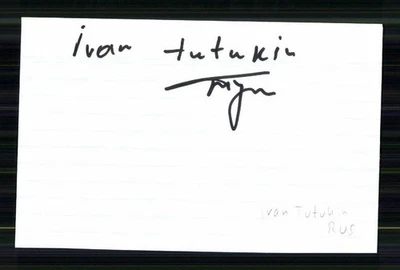 ivan tutukin
Ivan Tutukin
RUS